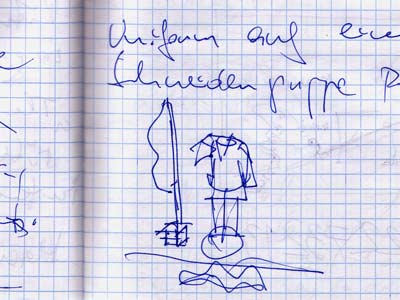 Uniform auf eine
Schneiderpuppe